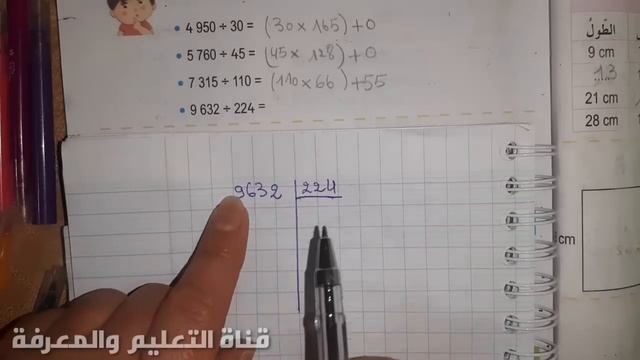 • 4 950 ÷ 30 = (30 × 165) + 0
• 5 760 ÷ 45 = (45 × 128) + 0
• 7 315 ÷ 110 = (110 × 66) + 55
• 9 632 ÷ 224 =
الطّولُ
9 cm
13
21 cm
28 cm
9632 224
cm
قناة التعليم والمعرفة